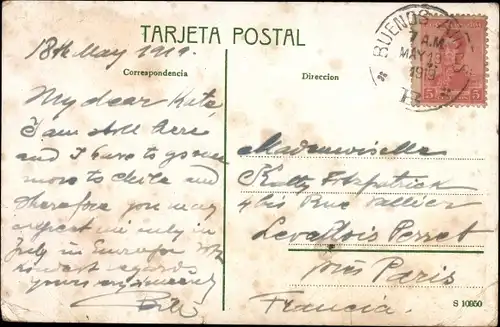 TARJETA POSTAL
Correspondencia
Direccion
BUENOS AI
7 A.M.
MAY 19
1919
5 5
18th May 1919.
My dear Kate,
I am still here
and I have to go once
more to Chile and
therefore you may
expect me only in
July in Europe. With
kindest regards
yours very sincerely
Mademoiselle
Kitty Fitzpatrick
4 bis Rue Vallier
Levallois Perret
près Paris
Francia.
S 10950